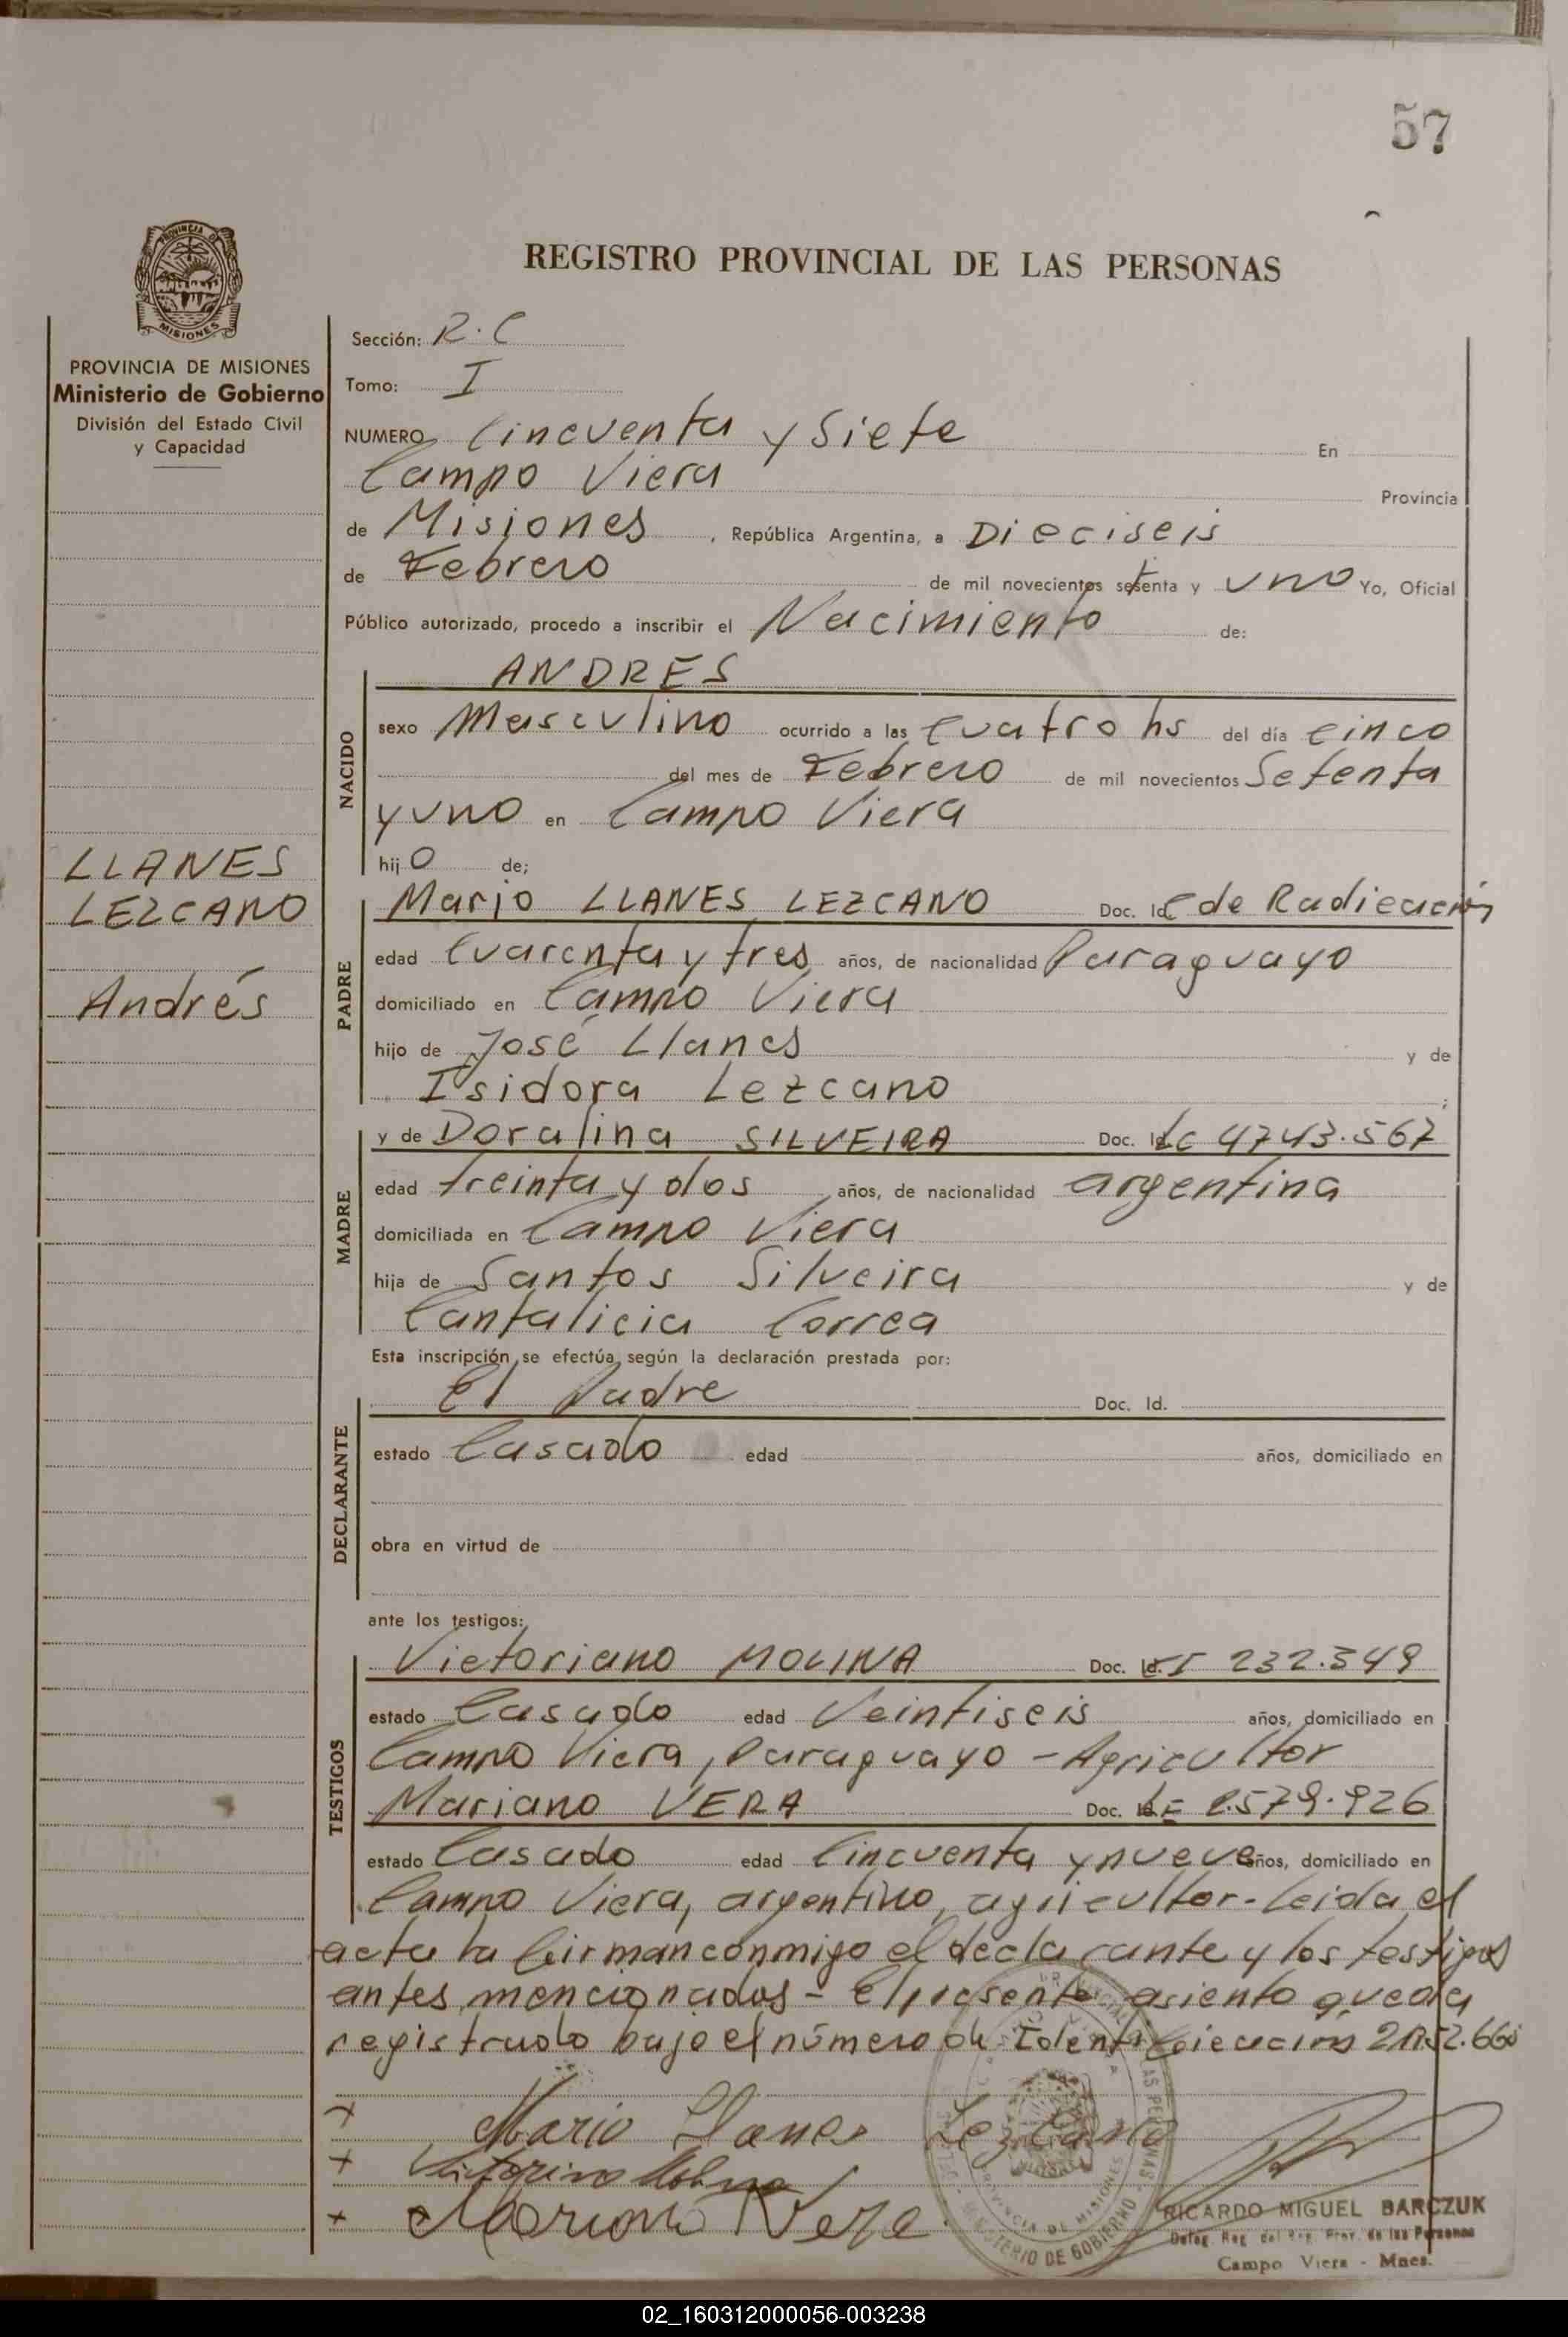 57
PROVINCIA DE
MISIONES
PROVINCIA DE MISIONES
Ministerio de Gobierno
División del Estado Civil
y Capacidad
LLANES
LEZCANO
Andrés
REGISTRO PROVINCIAL DE LAS PERSONAS
Sección: R.C
Tomo: I
NUMERO Cincuenta y Siete En
Campo Viera Provincia
de Misiones, República Argentina, a Dieciseis
de Febrero de mil novecientos setenta y uno Yo, Oficial
Público autorizado, procedo a inscribir el Nacimiento de:
NACIDO
ANDRES
sexo Masculino ocurrido a las cuatro hs del día cinco
del mes de Febrero de mil novecientos Setenta
y uno en Campo Viera
hijo de;
PADRE
Mario LLANES LEZCANO Doc. Id. C de Radicación
edad Cuarenta y tres años, de nacionalidad Paraguayo
domiciliado en Campo Viera
hijo de José Llanes y de
Isidora Lezcano;
MADRE
y de Doralina SILVEIRA Doc. Id. LC 4743.567
edad treinta y dos años, de nacionalidad argentina
domiciliada en Campo Viera
hija de Santos Silveira y de
Cantalicia Correa
Esta inscripción se efectúa según la declaración prestada por:
DECLARANTE
El Padre Doc. Id.
estado Casado edad años, domiciliado en
obra en virtud de
ante los testigos:
TESTIGOS
Victoriano MOLINA Doc. Id. 232.349
estado Casado edad Veintiseis años, domiciliado en
Campo Viera, Paraguayo - Agricultor
Mariano VERA Doc. Id. LE 2.579.926
estado Casado edad Cincuenta y nueve años, domiciliado en
Campo Viera, argentino, agricultor - Leida el
acta la firman conmigo el declarante y los testigos
antes mencionados - El presente asiento queda
registrado bajo el número de Identificación
x Mario Llanes Lezcano
x Victorino Molina
x Mariano Vera
MINISTERIO DE GOBIERNO
PROVINCIA DE MISIONES
RICARDO MIGUEL BARCZUK
Deleg. Reg. del Reg. Prov. de las Personas
Campo Viera - Mnes.
02_160312000056-003238